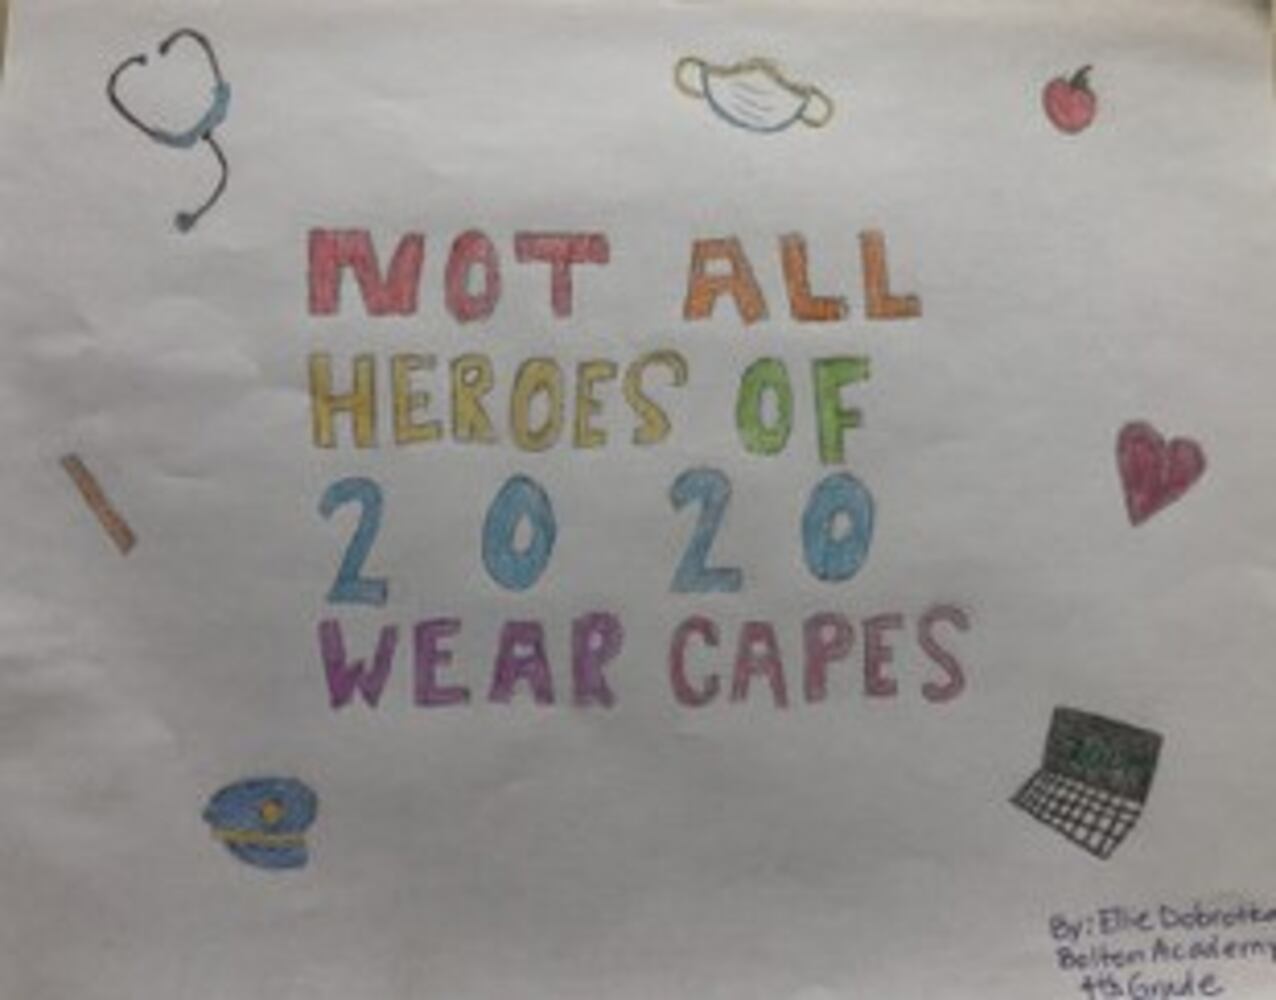 NOT ALL
HEROES OF
2020
WEAR CAPES
By: Ellie
Bolton Academy
4th Grade